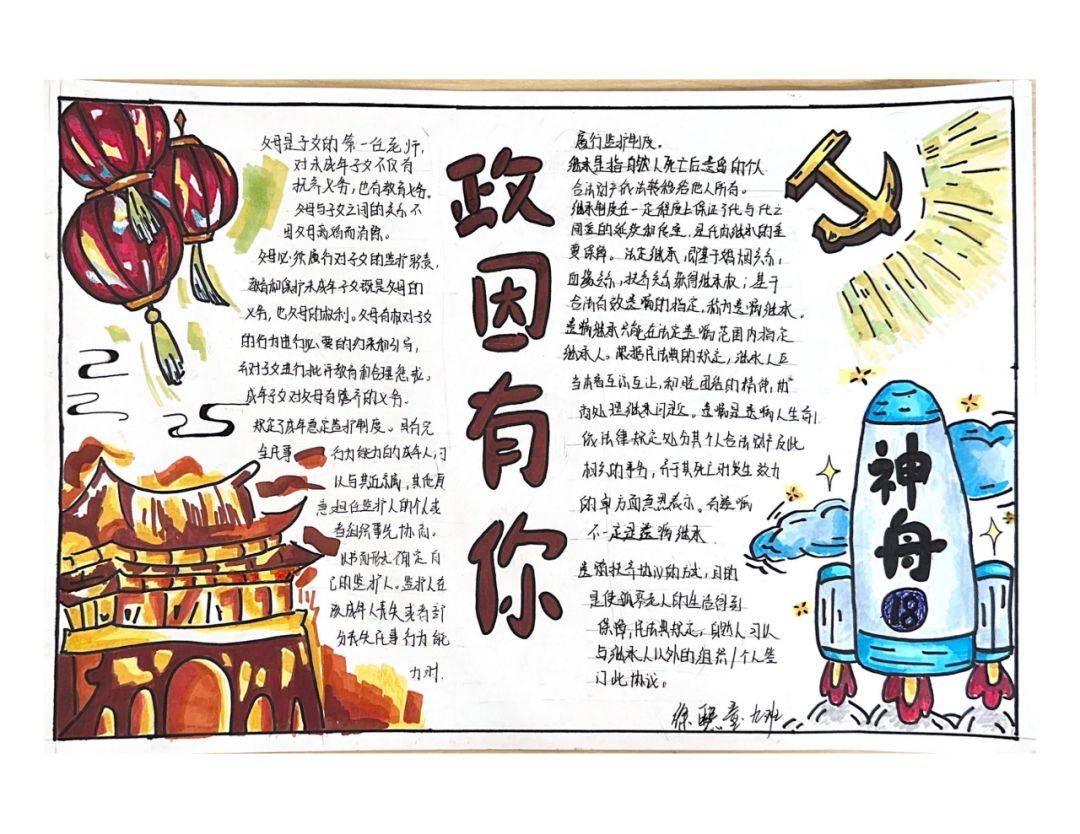 父母是子女的第一任老师,
对未成年子女不仅有
抚养义务,也有教育义务。
父母与子女之间的关系不
因父母离婚而消除。
父母必须履行对子女的监护职责,
教育和保护未成年子女既是父母的
义务,也父母的权利。父母有权对子女
的行为进行必要的约束和引导,
对子女进行批评教育和合理惩戒。
成年子女对父母有赡养的义务。
规定了成年意定监护制度。具有完
全民事行为能力的成年人,可
以与其近亲属,其他愿
意担任监护人的个人或
者组织事先协商。
以书面形式确定自
己的监护人。监护人在
该成年人丧失或者部
分丧失民事行为能
力时.
政因有你
履行监护制度。
继承是指自然人死亡后遗留的个人
合法财产依法转移给他人所有。
继承制度在一定程度上保证了代与代之
间爱的延续和传递,是民法继承的重
要保障。法定继承,即基于婚姻关系,
血缘关系,扶养关系获得继承权;基于
合法有效遗嘱的指定,称为遗嘱继承。
遗嘱继承只能在法定遗嘱范围内指定
继承人。根据民法典的规定,继承人应
当本着互谅互让,和睦团结的精神,协
商处理继承问题。遗嘱是遗嘱人生前
依法律规定处分其个人合法财产及此
相关的事务,并于其死亡时发生效力
的单方面意思表示。有遗嘱
不一定是遗嘱继承.
遗赠扶养协议的方式,目的
是使孤寡老人的生活得到
保障,民法典规定,自然人可以
与继承人以外的组织/个人签
订此协议。
神舟
18
九班